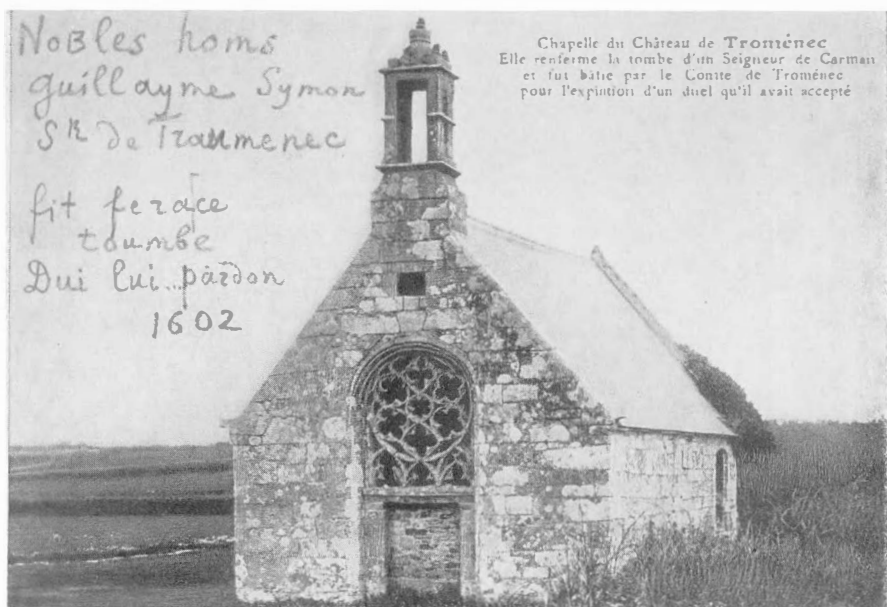 NoBles homs
guillayme Symon
SR de Traumenec
fit ferace
toumbe
Dui lui pardon
1602
Chapelle du Château de Troménec
Elle renferme la tombe d'un Seigneur de Carman
et fut bâtie par le Comte de Troménec
pour l'expiation d'un duel qu'il avait accepté